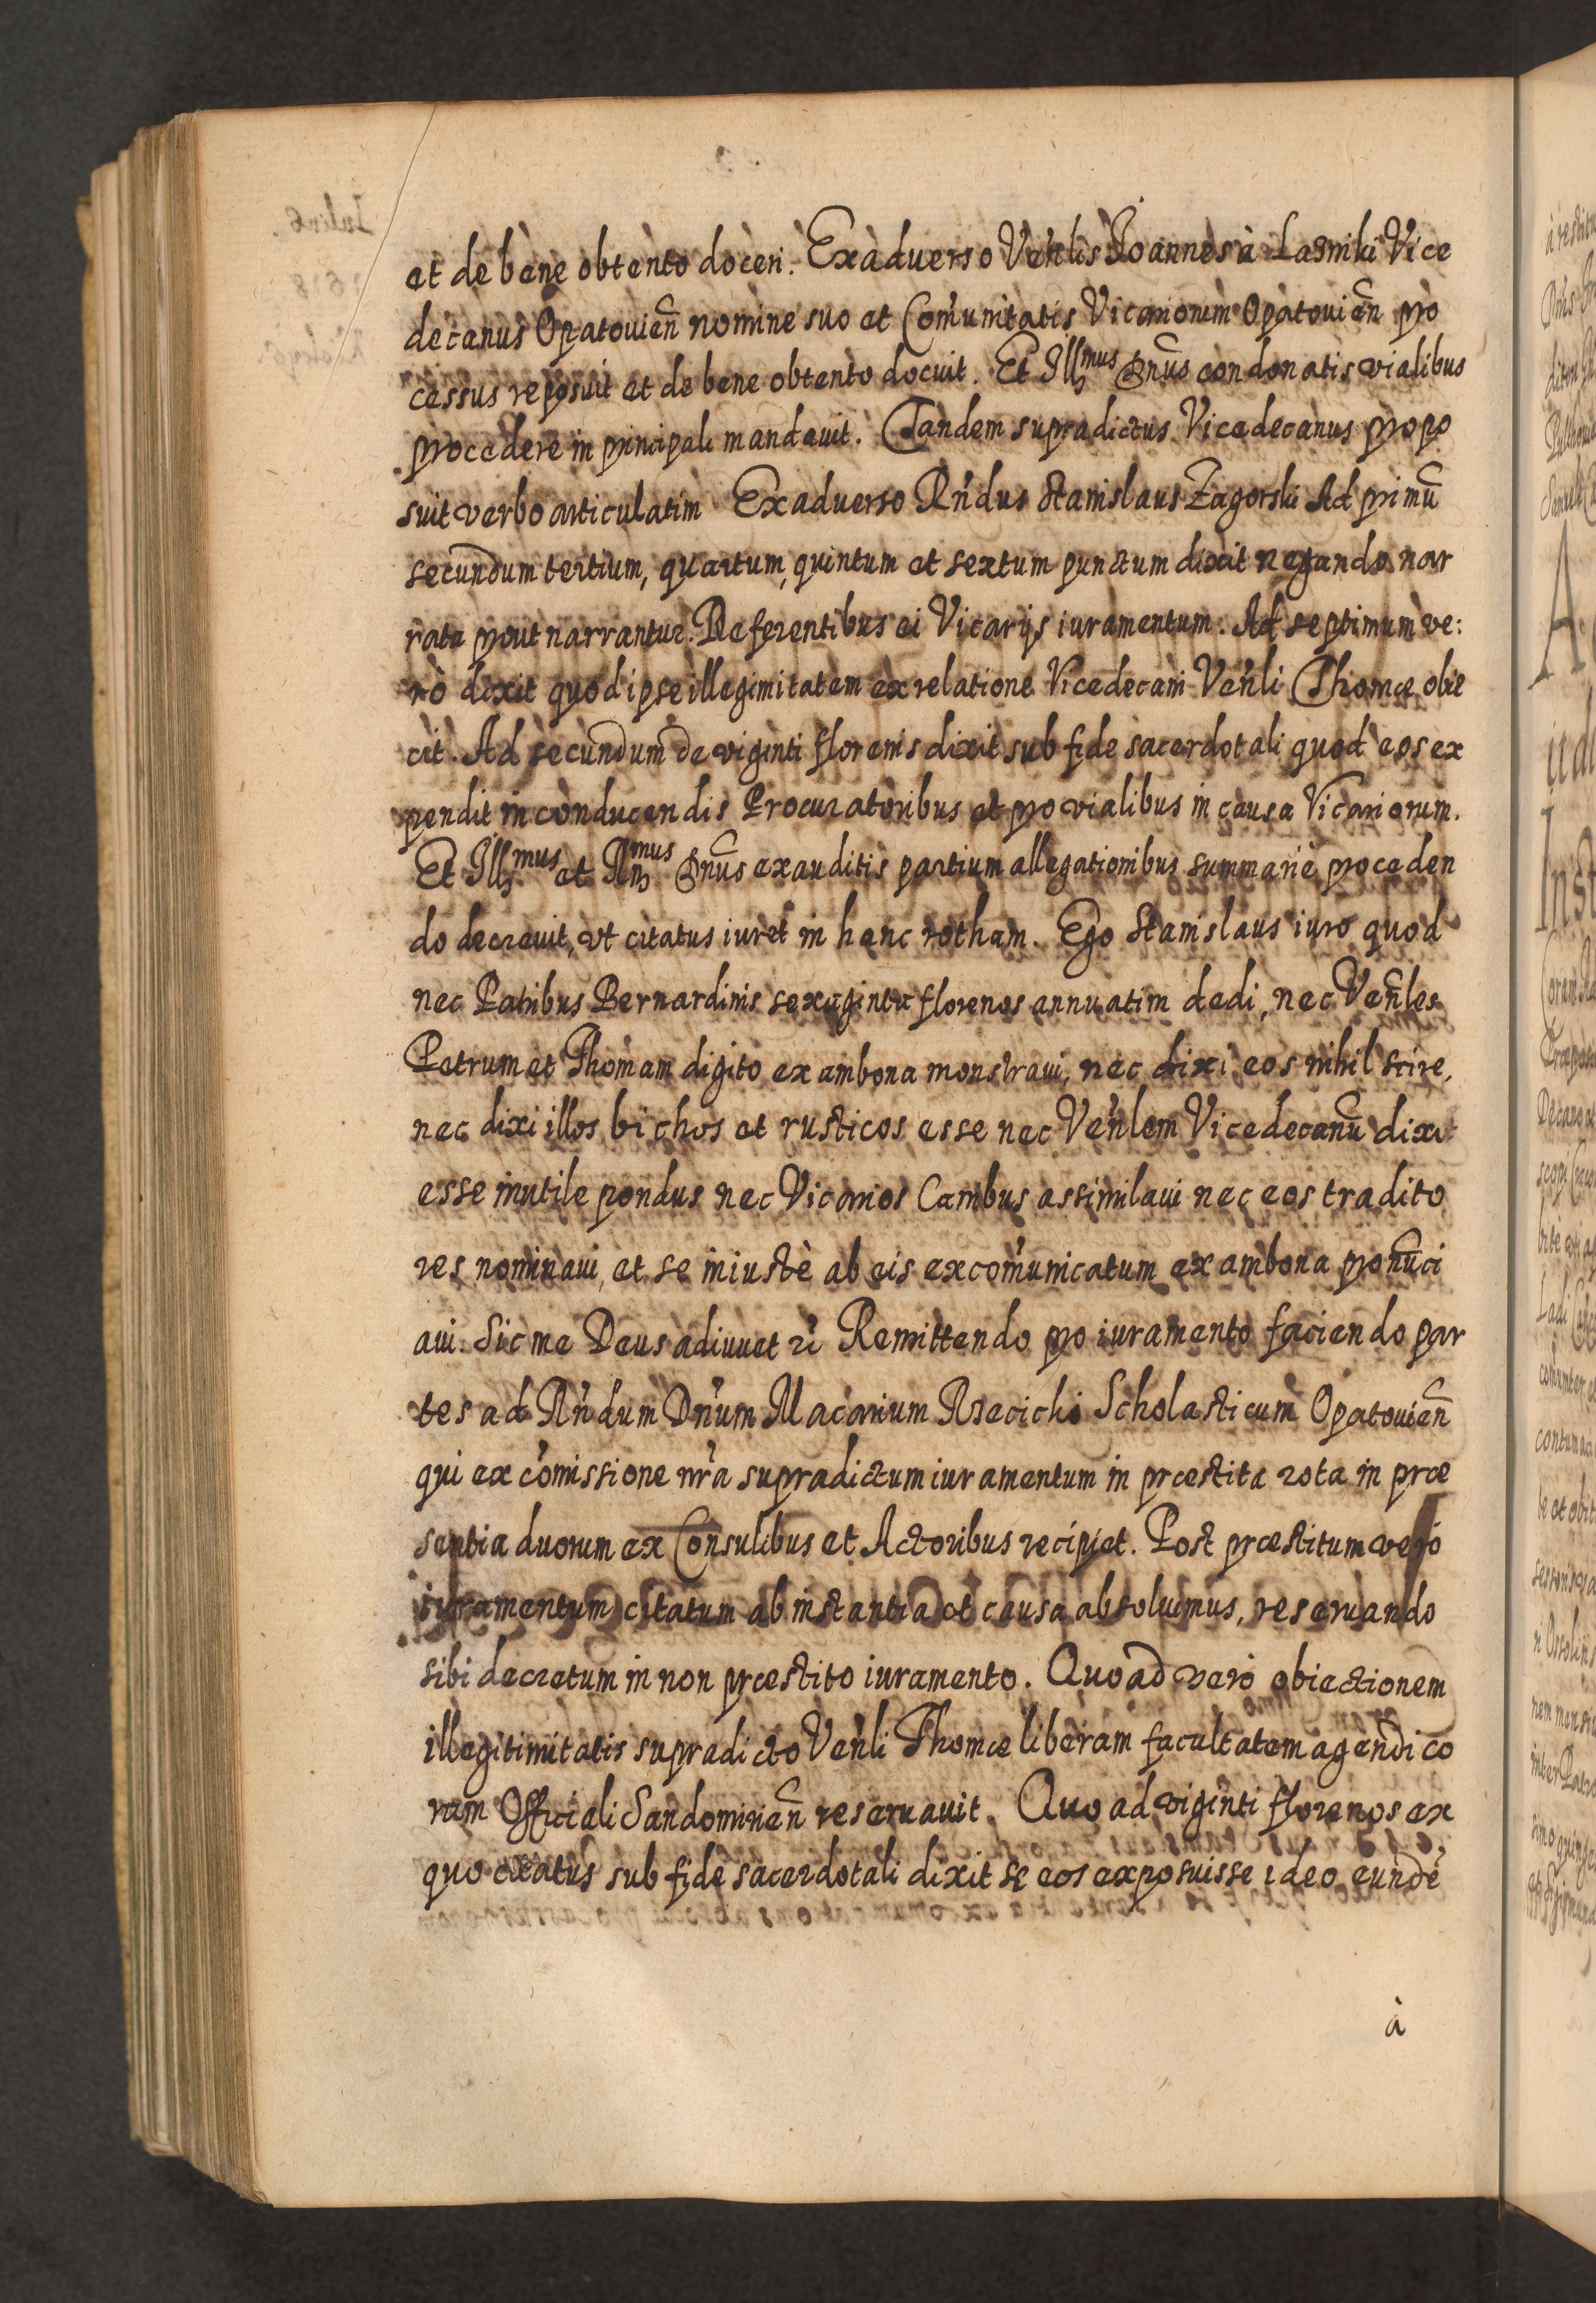 et de bene obtento doceri. Exaduerso Ven'lis Joannes à Lagniki Vice
decanus Opatouien̄ nomine suo et Com̄unitatis Vicariorum Opatouien̄ pro
cessus reposuit et de bene obtento docuit. Et Illmus Dn̄us condonatis vialibus
procedere in principali mandauit. Tandem supradictus Vicedecanus propo
suit verbo articulatim Exaduerso Rn'dus Stanislaus Zagorski Ad primū
secundum tertium, quartum, quintum et sextum punctum dixit negando nar
rata prout narrantur. Referentibus ei Vicarijs iuramentum. Ad septimum ve:
rò dixit quod ipse illegimitatem ex relatione Vicedecani Ven'li Thomæ obie
cit. Ad secundum de viginti florenis dixit sub fide sacerdotali quod eos ex
pendit in conducendis Procuratoribus et pro vialibus in causa Vicariorum.
Et Illmus et Rn̄mus Dn̄us exauditis partium allegationibus summarie proceden
do decreuit, vt citatus iuret in hanc rotham. Ego Stanislaus iuro quod
nec Patribus Bernardinis sexaginta florenos annuatim dedi, nec Ven̄les
Petrum et Thomam digito ex ambona monstraui, nec dixi eos nihil scire,
nec dixi illos bichos et rusticos esse nec Ven'lem Vicedecanū dixi
esse inutile pondus nec Vicarios Canibus assimilaui nec eos tradito
res nominaui, et se iniustè ab eis excom̄unicatum ex ambona pronūci
aui. Sic me Deus adiuuet rc̄ Remittendo pro iuramento faciendo par
tes ad Rn'dum Dn'um Macarium Rsecicki Scholasticum Opatouien̄
qui ex com̄issione nr̄a supradictum iuramentum in præstita rota in præ
sentia duorum ex Consulibus et Actoribus recipiet. Post præstitum vero
iuramentum citatum ab instantia et causa absoluimus, reseruando
sibi decretum in non præstito iuramento. Quo ad vero obiectionem
illegitimitatis supradicto Ven'li Thomæ liberam facultatem agendi co
ram Officiali Sandomirien̄ reseruauit. Quo ad viginti florenos ex
quo citatus sub fide sacerdotali dixit se eos exposuisse ideo eundē
à